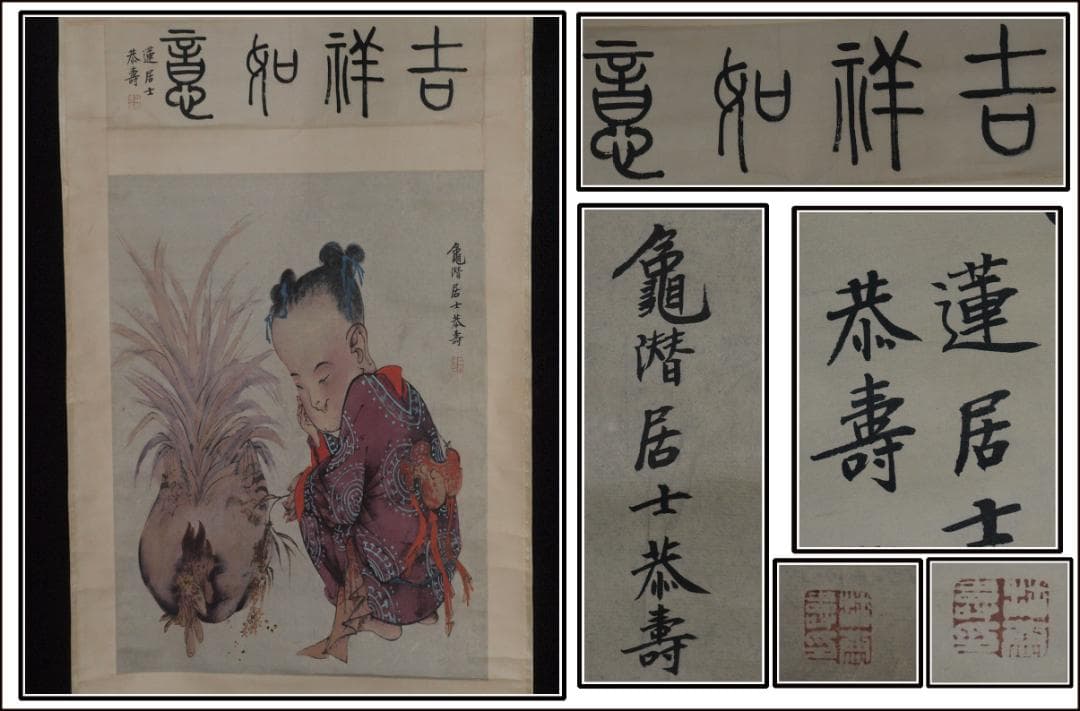 吉祥如意
蓮居士
恭壽
龜潜居士恭壽
吉祥如意
龜潜居士恭壽
蓮居士
恭壽